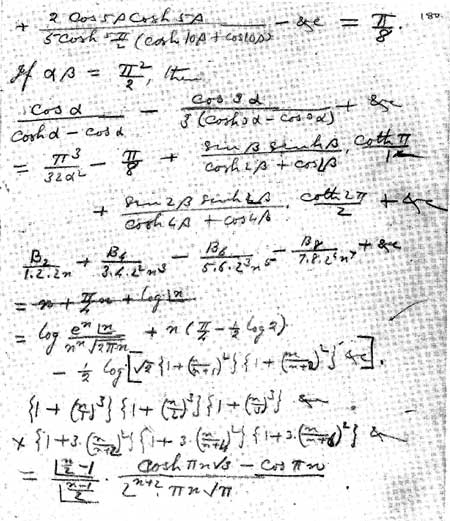 180
+ \frac{2 Cos 5β Cosh 5β}{5 Cosh 5\frac{π}{2} (cosh 10β + cos 10β)} - &c = \frac{π}{8}.
If αβ = \frac{π^2}{2}, then
\frac{cos α}{cosh α - cos α} - \frac{cos 3α}{3 (cosh 3α - cos 3α)} + &c
= \frac{π^3}{32α^2} - \frac{π}{8} + \frac{sin β sinh β}{cosh 2β + cos 2β} · \frac{coth π}{1}
+ \frac{sin 2β sinh 2β}{cosh 4β + cos 4β} · \frac{coth 2π}{2} + &c
\frac{B_2}{1.2.2n} + \frac{B_4}{3.4.2^2n^3} - \frac{B_6}{5.6.2^3n^5} - \frac{B_8}{7.8.2^4n^7} + &c
= n + \frac{π}{4} n + log |n
= log \frac{e^n |n}{n^n \sqrt{2πn}} + n (\frac{π}{4} - \frac{1}{2} log 2)
- \frac{1}{2} log [√2 {1 + (\frac{n}{n+1})^2} {1 + (\frac{n}{n+2})^2} &c].
{1 + (\frac{n}{1})^3} {1 + (\frac{n}{2})^3} {1 + (\frac{n}{3})^3} &c
× {1 + 3.(\frac{n}{n+2})^2} {1 + 3.(\frac{n}{n+4})^2} {1 + 3.(\frac{n}{n+6})^2} &c
= \frac{|\frac{n}{2} - 1}{|\frac{n-1}{2}} · \frac{Cosh πn√3 - cos πn}{2^{n+2} · πn√π}